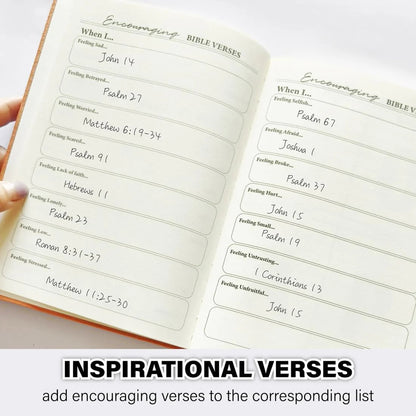 Encouraging BIBLE VERSES
When I...
Feeling Sad...
John 14
Feeling Betrayed...
Psalm 27
Feeling Worried...
Matthew 6:19-34
Feeling Scared...
Psalm 91
Feeling Lack of faith...
Hebrews 11
Feeling Lonely...
Psalm 23
Feeling Low...
Roman 8:31-37
Feeling Stressed...
Matthew 11:25-30
Encouraging BIBLE V
When I...
Feeling Selfish...
Psalm 67
Feeling Afraid...
Joshua 1
Feeling Broke...
Psalm 37
Feeling Hurt...
John 15
Feeling Small...
Psalm 19
Feeling Untrusting...
1 Corinthians 13
Feeling Unfruitful...
John 15
INSPIRATIONAL VERSES
add encouraging verses to the corresponding list